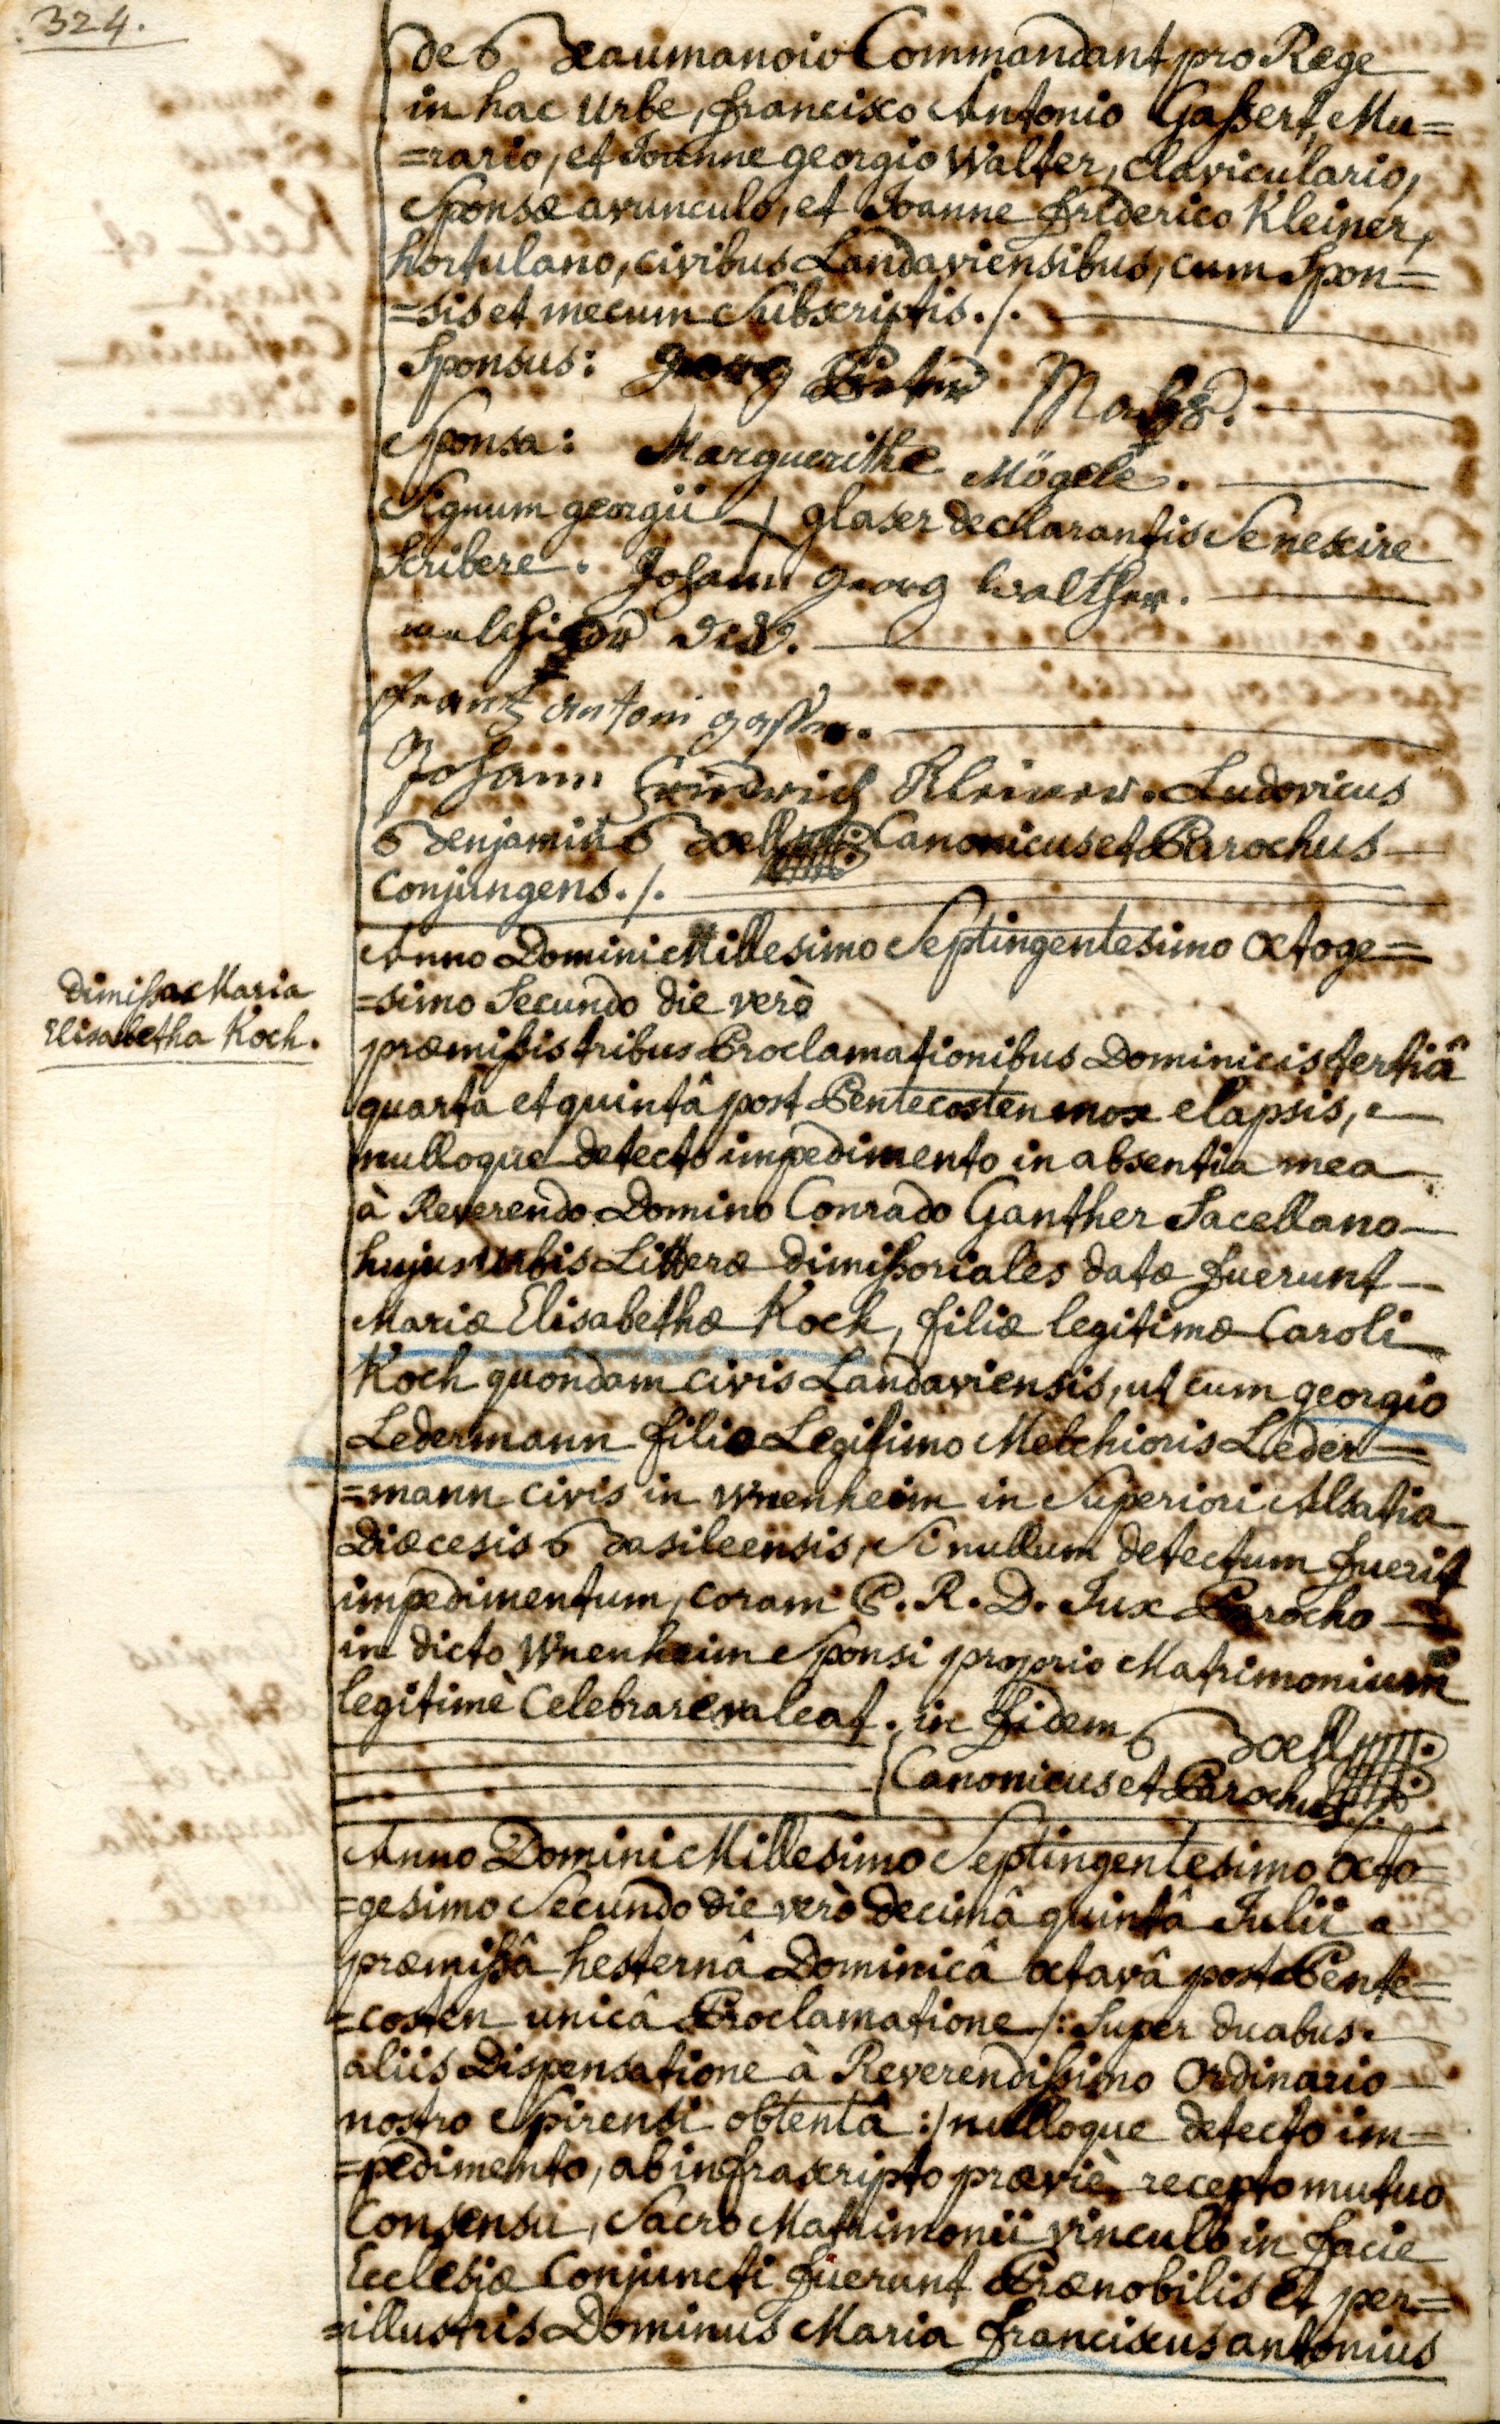 324.
de Beaumanoir Commandant pro Rege
in hac Urbe, Francisco Antonio Gaßert, Mu=
=rario, et Joanne georgio Walter, claviculario,
Sponsæ avunculo, et Joanne Friderico Kleiner,
hortulano, civibus Landaviensibus, cum Spon=
=sis et mecum Subscriptis./.
Sponsus: Georg Peter
Sponsa: Marguerithe Mögele.
Signum georgii + glaser declarantis Se nescire
Scribere. Johann georg Walther.
Frantz antoni
Johann Friedrich Kleiner. Ludovicus
Benjamin Boell Canonicus et Parochus
Conjungens./.
Dimißa Maria
Elisabetha Koch.
Anno Domini Millesimo Septingentesimo Octoge=
=simo Secundo die verò
præmißis tribus Proclamationibus Dominicis tertiâ
quarta et quintâ post Pentecosten mox elapsis,
nulloque detecto impedimento in absentia mea
à Reverendo Domino Conrado Ganther Sacellano
hujus urbis Litteræ dimißoriales datæ fuerunt
Mariæ Elisabethæ Koch, filiæ legitimæ Caroli
Koch quondam civis Landaviensis, ut cum georgio
Ledermann filio Legitimo Melchioris Leder=
=mann civis in Wuenheim in Superiori Alsatia
Diœcesis Basileensis, Si nullum detectum fuerit
impedimentum, coram P. R. D. Jux Parocho
in dicto Wuenheim Sponsi proprio Matrimonium
legitimè Celebrare valeat. in fidem Boell
Canonicus et Parochus./.
Anno Domini Millesimo Septingentesimo Octo=
=gesimo Secundo die verò decimâ quintâ Julii
præmißâ hesternâ Dominicâ octavâ post Pente=
=costen unicâ Proclamatione /: Super duabus
aliis Dispensatione à Reverendißimo Ordinario
nostro Spirensi obtentâ :/ nulloque detecto im=
=pedimento, ab infrascripto præviè recepto mutuo
Consensu, Sacro Matrimonii vinculo in facie
Ecclesiæ Conjuncti fuerunt Prænobilis et per=
=illustris Dominus Maria Franciscus antonius